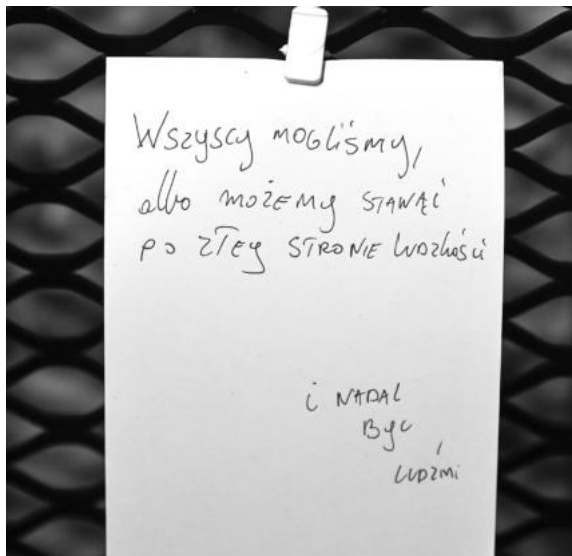 Wszyscy MOGLiŚMy,
albo MOŻEMy STAWAĆ
PO ZŁEy STRONIE LUDZKOŚCi
i NADAL
Być
LUDŹMi